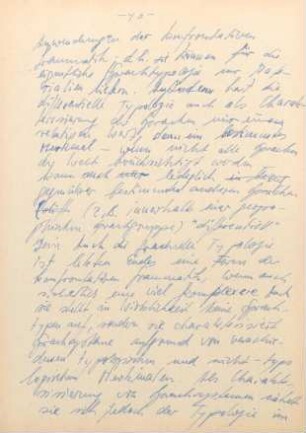 -43-
der konfrontativen
Grammatik, d.h. sie können für die
eigentliche Sprachtypologie nur Ma-
terialien liefern. Außerdem hat die
differentielle Typologie auch als Charak-
terisierung der Sprachen nur einen
relativen Wert, denn ein bestimmtes
Merkmal – wenn nicht alle Sprachen
der Welt berücksichtigt werden
kann nur lediglich in
gegenüber bestimmten anderen Sprachen
(z.B. innerhalb einer geogra-
phischen Sprachgruppe) "differentiell"
sein. Auch die Typologie
ist letzten Endes eine Form der
konfrontativen Grammatik, wenn auch
eine viel komplexere. Auch
sie stellt in Wirklichkeit keine Sprach-
typen auf, sondern sie charakterisiert
Sprachsysteme aufgrund von verschie-
denen typologischen und nicht-typo-
logischen Merkmalen. Als Charakte-
risierung von Sprachsystemen nähert
sie sich jedoch der Typologie im